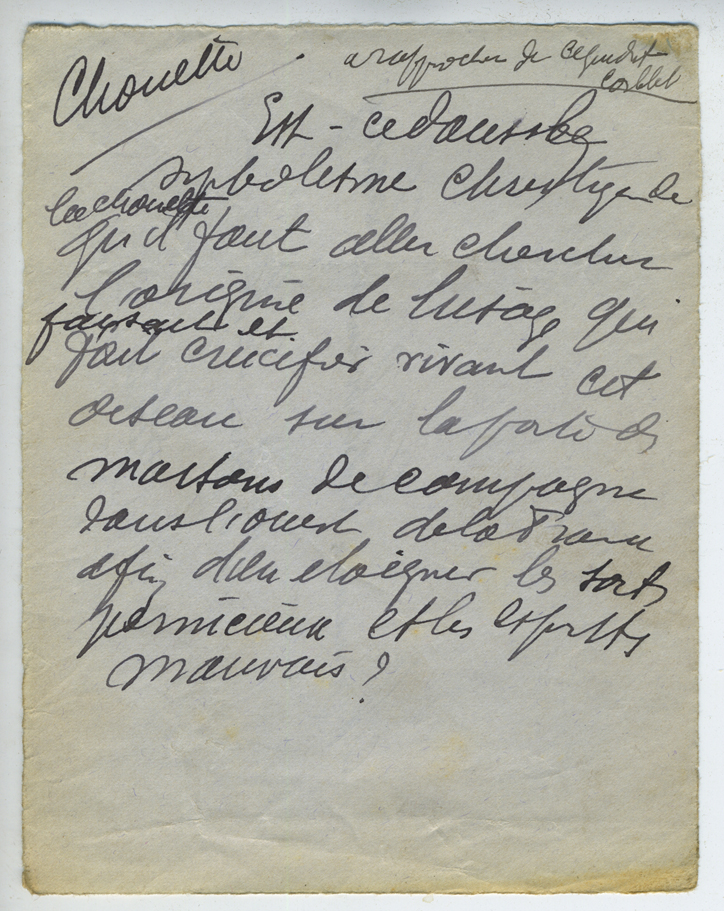 Chouette
a rapprocher de ce que dit
Corblet
Est-ce dans le
symbolisme chretien de
la chouette
qu'il faut aller chercher
l'origine de l'usage qui
faisait et
fait crucifier vivant cet
oiseau sur la porte des
maisons de campagne
dans l'ouest de la France
afin d'en eloigner les sorts
pernicieux et les esprits
mauvais ?